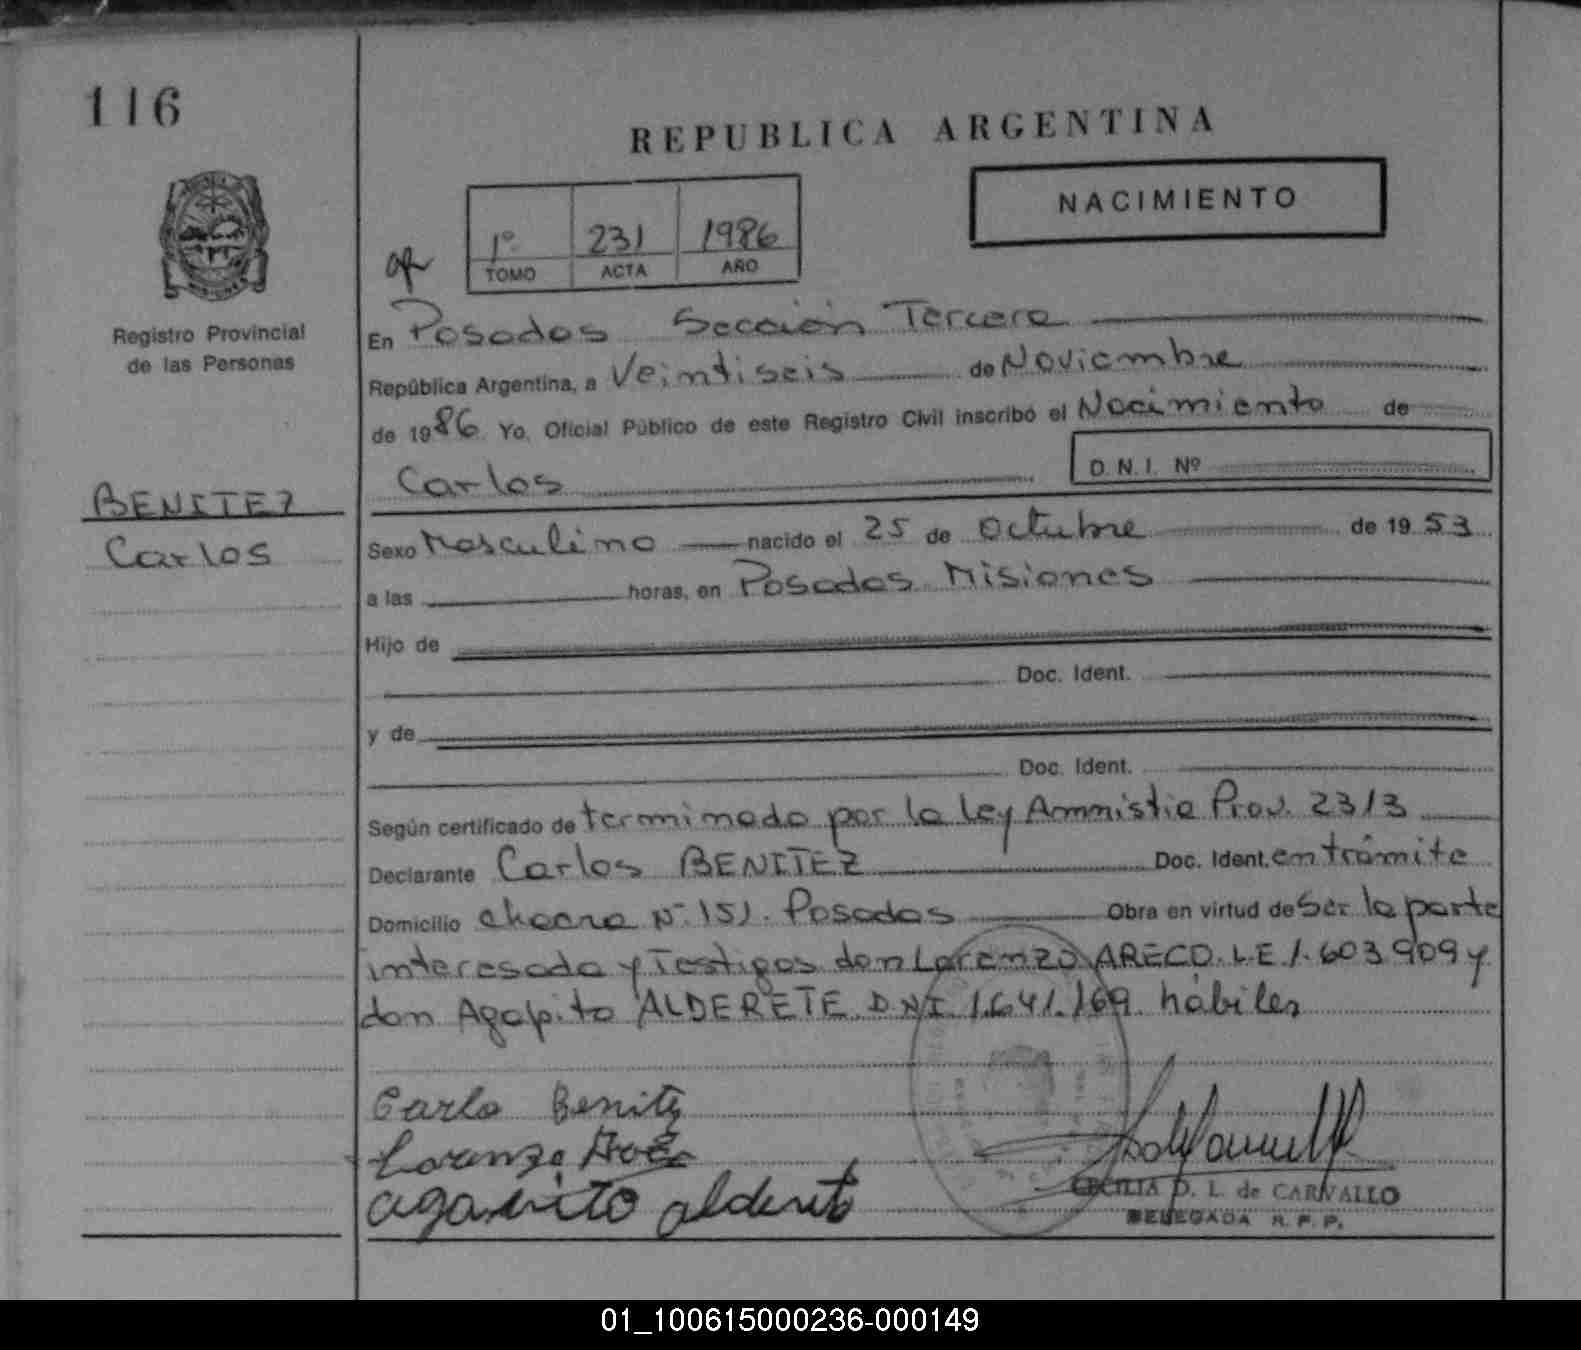 116
REPUBLICA ARGENTINA
NACIMIENTO
1º 231 1986
TOMO ACTA AÑO
Registro Provincial
de las Personas
En Posadas Sección Tercera
República Argentina, a Veintiseis de Noviembre
de 1986 Yo, Oficial Público de este Registro Civil inscribo el Nacimiento de
Carlos D. N. I. Nº
BENITEZ
Carlos
Sexo Masculino nacido el 25 de Octubre de 1953
a las horas, en Posadas Misiones
Hijo de
Doc. Ident.
y de
Doc. Ident.
Según certificado de terminado por la Ley Amnistia Prov. 2313
Declarante Carlos BENITEZ Doc. Ident. en trámite
Domicilio chacra Nº 151. Posadas Obra en virtud de Ser la parte
interesada y Testigos don Lorenzo ARECO. L.E 1.603.909 y
don Agapito ALDERETE D.N.I. 1.641.169. hábiles
Carlo Benitz
Lorenzo
agapito alderete
CECILIA D. L. de CARVALLO
DELEGADA R. P. P.
01_100615000236-000149